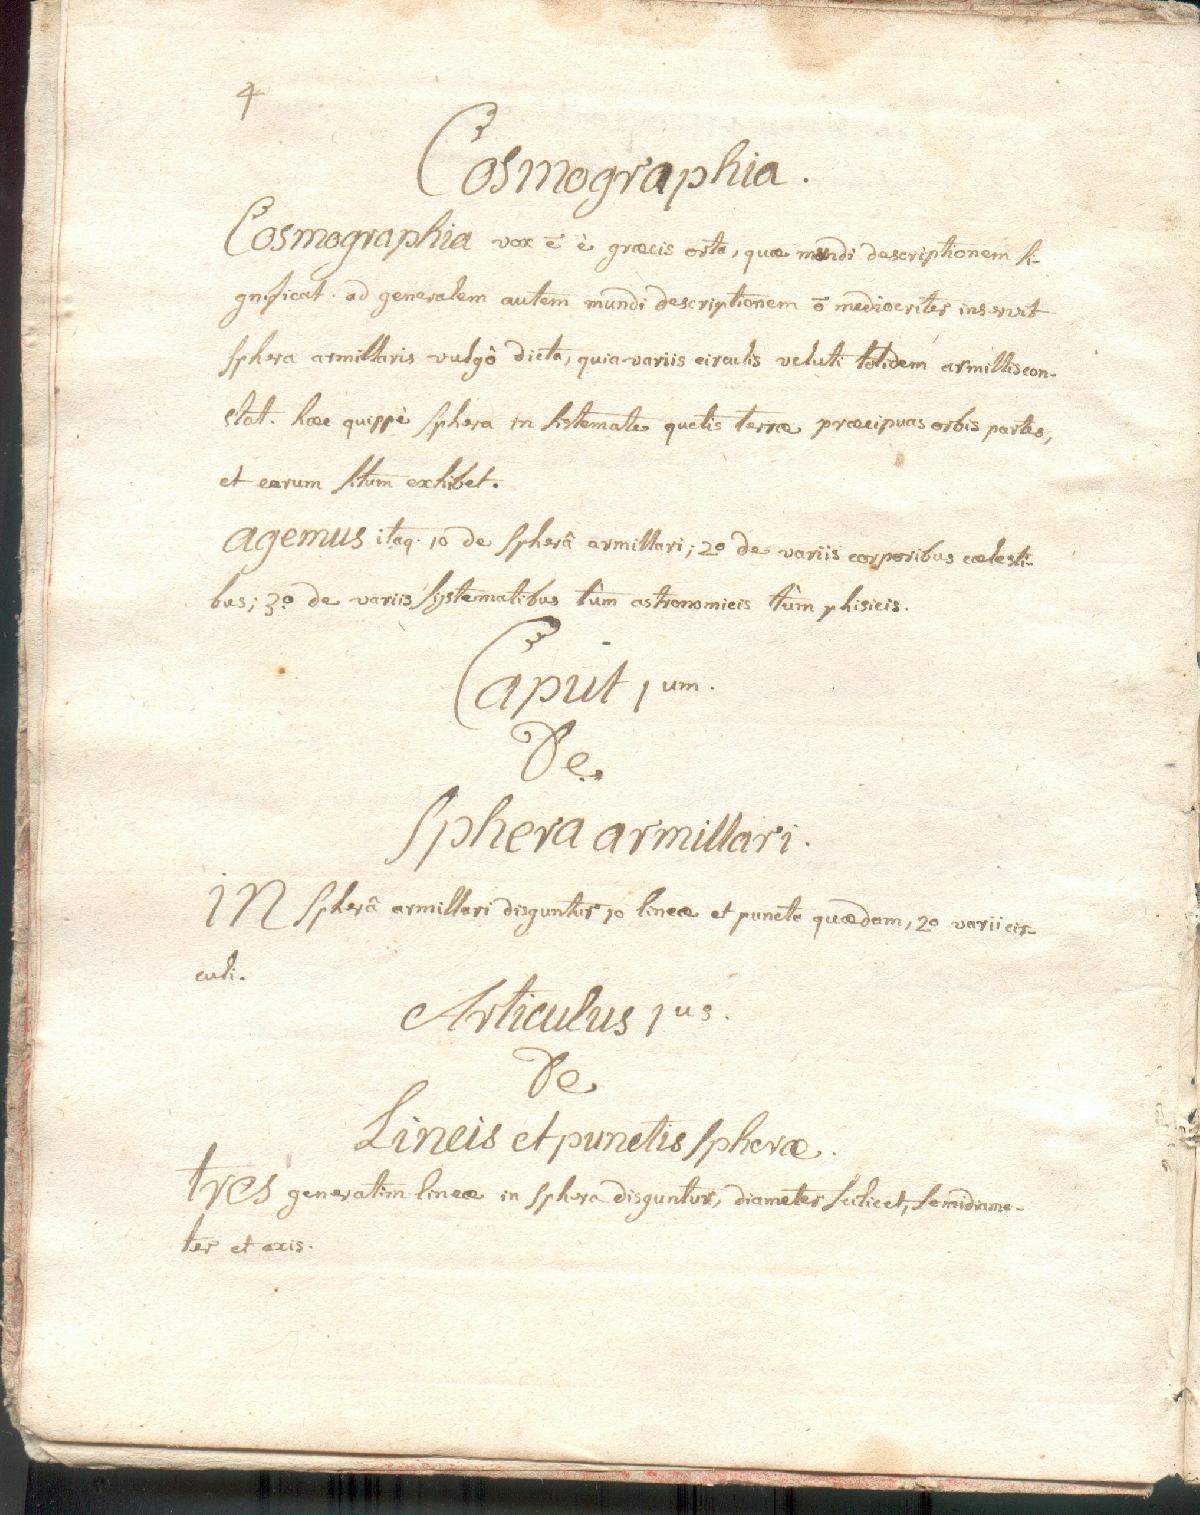 4
Cosmographia.
Cosmographia vox ē è græcis orta, quæ mundi descriptionem si-
gnificat. ad generalem autem mundi descriptionem ō mediocriter inservit
sphera armillaris vulgò dicta, quia variis circulis veluti totidem armillis con-
stat. hæc quippè sphera in sistemate quetis terræ præcipuas orbis partes,
et earum situm exhibet.
agemus itaq. 1o de spherâ armillari; 2o de variis corporibus cælesti-
bus; 3.o de variis systematibus tùm astronomicis tùm phisicis.
Caput 1um.
De
Sphera armillari.
in spherâ armillari disguntur 1o lineæ et puncta quædam, 2o varii cir-
culi.
Articulus 1us.
De
Lineis et punctis spheræ.
tres generatim lineæ in sphera disguntur, diameter scilicet, semidiame-
ter et axis.